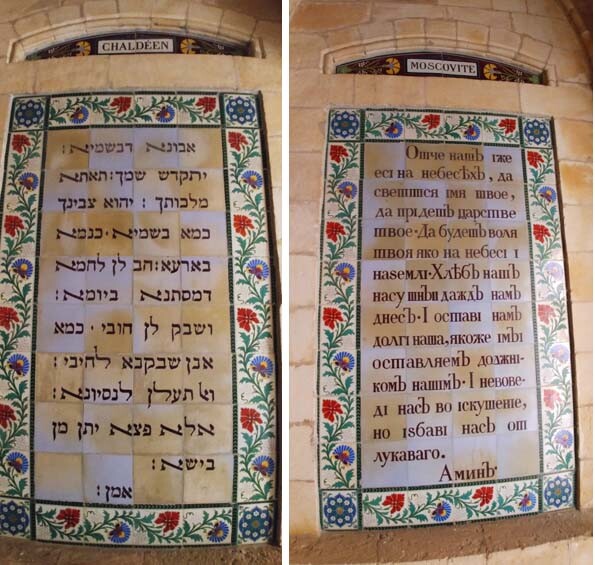 CHALDÉEN
אבונא דבשמיא:
יתקדש שמך: תאתא
מלכותך: יהוא צבינך
כמא בשמיא · כנמא
בארעא: הב לן לחמא
דמסתנא ביומא:
ושבק לן חובי · כמא
אנן שבקנא לחיבי:
ולא תעלן לנסיונא:
אלא פצא יתן מן
בישא:
אמן:
MOSCOVITE
Отче нашЪ iже
есi на небесѢхЪ, да
святится iмя твое,
да прiдешЪ царствe
твое · Да будешЪ воля
твоя яко на небесi i
на землi · ХлѢбЪ нашЪ
насу щнЫi даждЪ намЪ
днесЬ · I оставi намЪ
долгi наша, якоже iмЫ
оставляемЪ должнi-
комЪ нашiмЪ · I невове-
дi насЪ во iскушенiе,
но iзбавi насЪ от
лукаваго.
АминЬ·